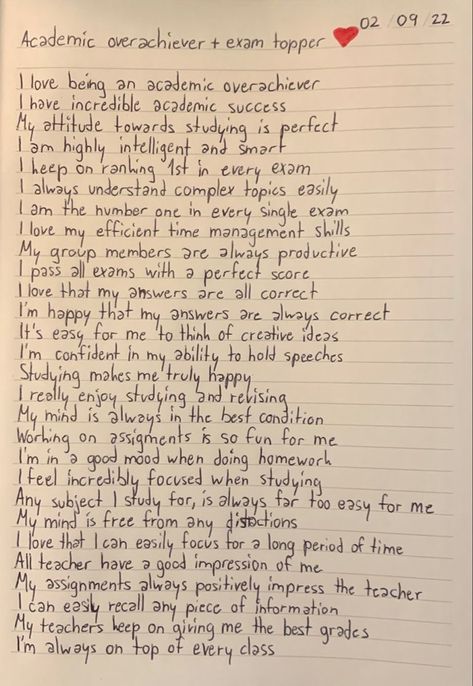 02 / 09 / 22
Academic overachiever + exam topper
I love being an academic overachiever
I have incredible academic success
My attitude towards studying is perfect
I am highly intelligent and smart
I keep on ranking 1st in every exam
I always understand complex topics easily
I am the number one in every single exam
I love my efficient time management skills
My group members are always productive
I pass all exams with a perfect score
I love that my answers are all correct
I'm happy that my answers are always correct
It's easy for me to think of creative ideas
I'm confident in my ability to hold speeches
Studying makes me truly happy
I really enjoy studying and revising
My mind is always in the best condition
Working on assigments is so fun for me
I'm in a good mood when doing homework
I feel incredibly focused when studying
Any subject I study for, is always far too easy for me
My mind is free from any distactions
I love that I can easily focus for a long period of time
All teacher have a good impression of me
My assignments always positively impress the teacher
I can easily recall any piece of information
My teachers keep on giving me the best grades
I'm always on top of every class